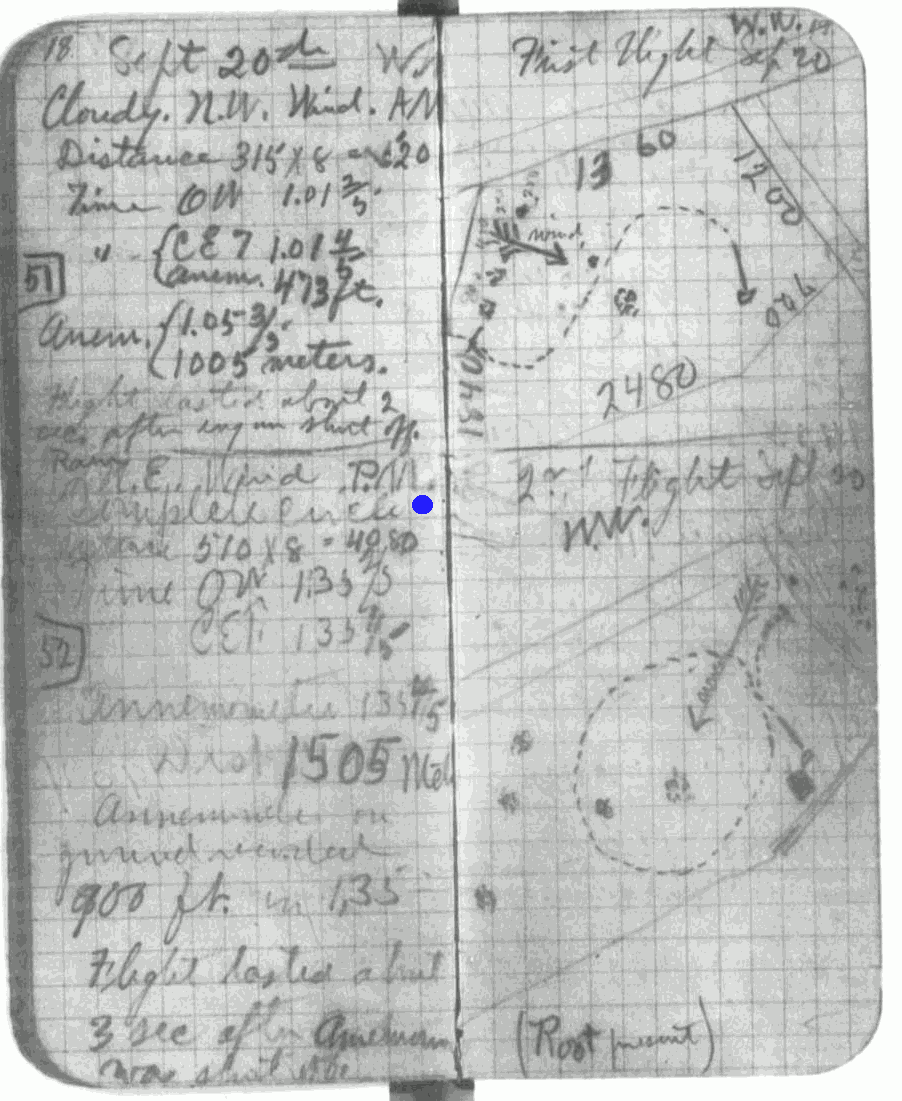 18 Sept 20th W.
Cloudy. N.W. Wind. AM
Distance 315 x 8 = 2520
Time OW 1.01 3/5
" CET 1.01 4/5
anem. 473 ft.
51
Anem. 1.05 3/5
1005 meters.
Flight lasted about 2
sec. after engin shut off.
N.E. Wind P.M.
Complete Circle
510 x 8 = 4080
Time OW 1,35
CET. 1 35
52
Annemometer 1 35 4/5
Dist 1505 Met
Annemometer on
ground recorded
900 ft. in 1,35
Flight lasted about
3 sec after Anemom
was shut off.
First Flight W.W.
Sep 20
13 60
1200
wind
760
1840
2480
2nd Flight Sept 20
W.W.
wind
(Root present)